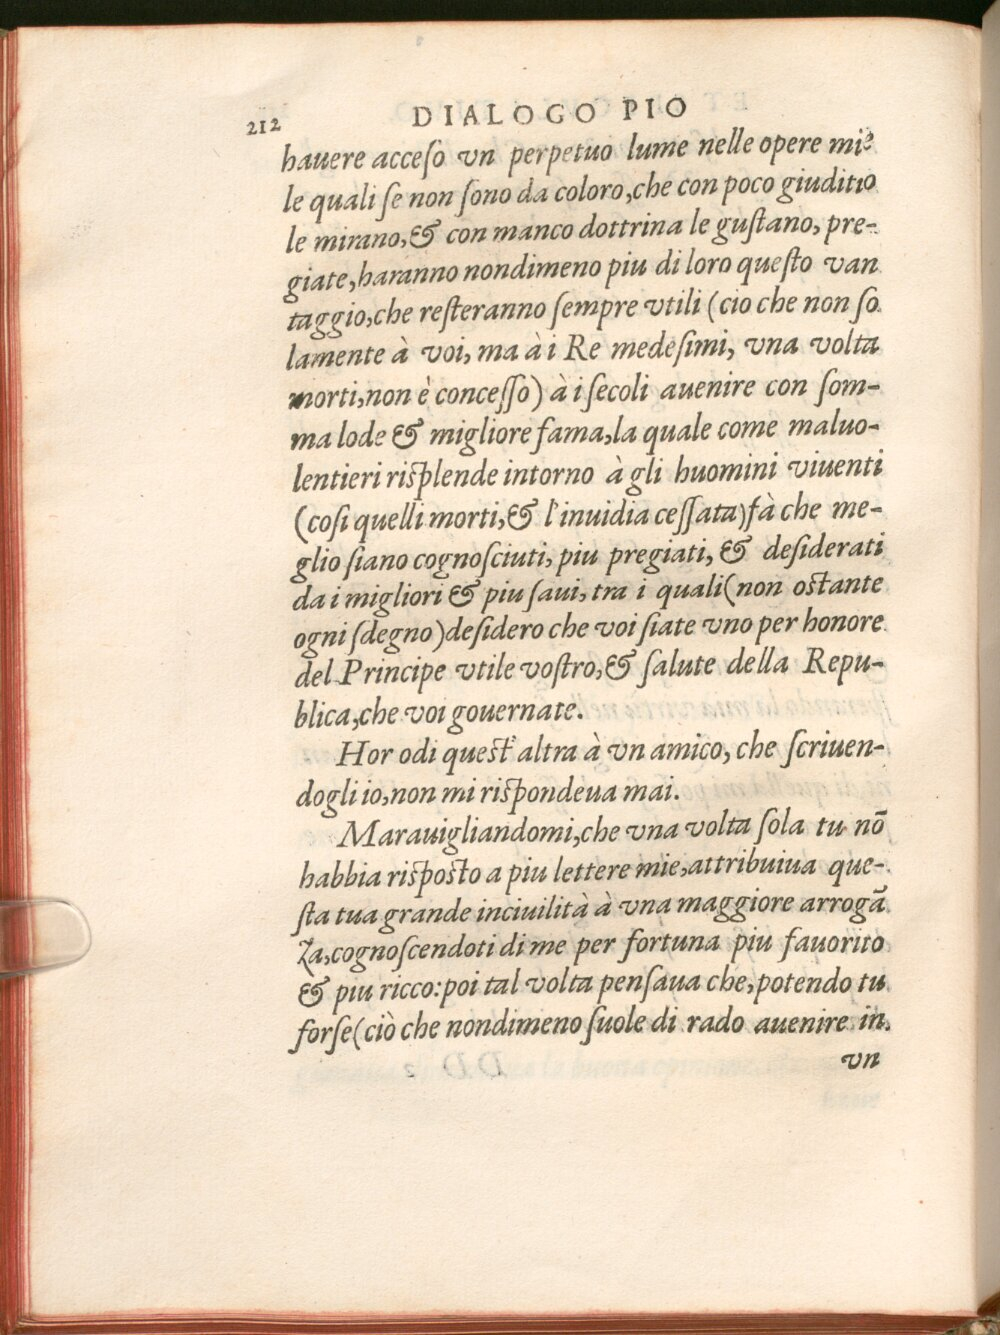 212 DIALOGO PIO
hauere acceſo vn perpetuo lume nelle opere mie
le quali ſe non ſono da coloro,che con poco giuditio
le mirano,& con manco dottrina le guſtano, pre-
giate,haranno nondimeno piu di loro queſto van
taggio,che reſteranno ſempre vtili (cio che non ſo
lamente à voi, ma à i Re medeſimi, vna volta
morti,non è conceſſo) à i ſecoli auenire con ſom-
ma lode & migliore fama,la quale come maluo-
lentieri riſplende intorno à gli huomini viuenti
(coſi quelli morti,& l'inuidia ceſſata)fà che me-
glio ſiano cognoſciuti, piu pregiati, & deſiderati
da i migliori & piu ſaui, tra i quali(non oſtante
ogni ſdegno)deſidero che voi ſiate vno per honore
del Principe vtile voſtro,& ſalute della Repu-
blica,che voi gouernate.
Hor odi queſt'altra à vn amico, che ſcriuen-
dogli io,non mi riſpondeua mai.
Marauigliandomi,che vna volta ſola tu nō
habbia riſpoſto a piu lettere mie,attribuiua que-
ſta tua grande inciuilità à vna maggiore arrogā
za,cognoſcendoti di me per fortuna piu fauorito
& piu ricco:poi tal volta penſaua che,potendo tu
forſe(ciò che nondimeno ſuole di rado auenire in
vn